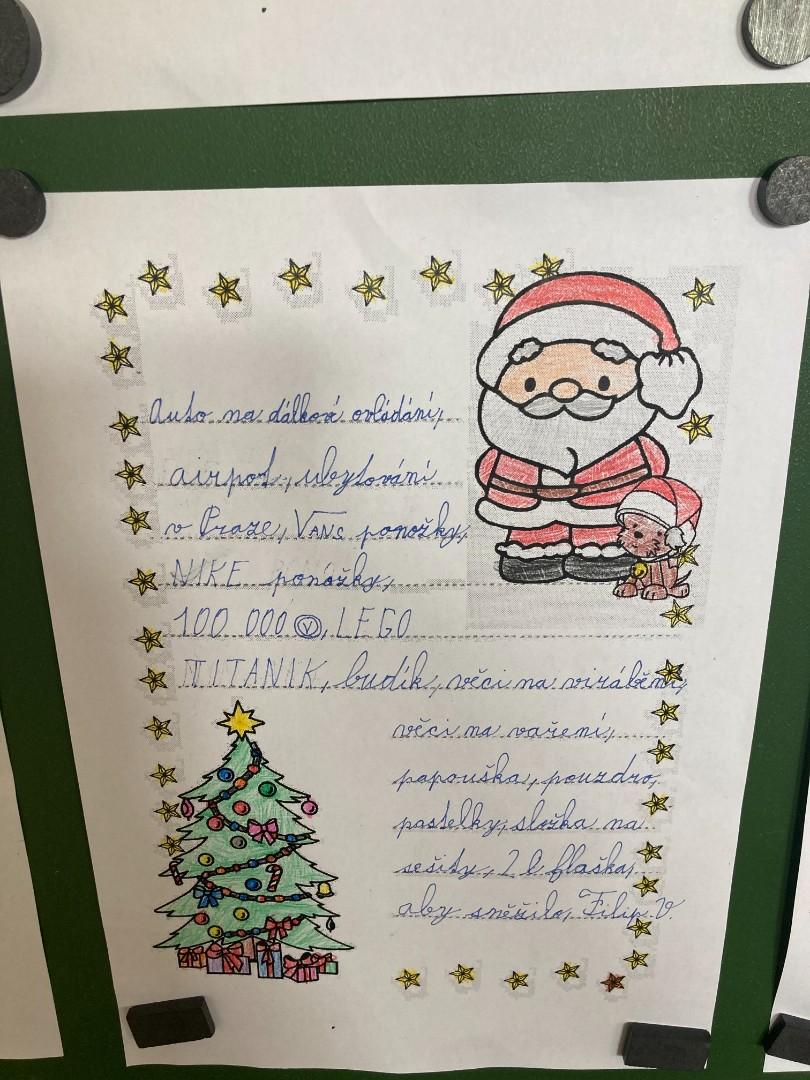 Auto na dálkové ovládání,
airpot, ubytování
v Praze, VANS ponožky,
NIKE ponóžky,
100 000 Ⓥ, LEGO
TITANIK, budík, věci na virábění,
věci na vaření,
papouška, pouzdro,
pastelky, složka na
sešity, 2 l flaška,
aby sněžilo, Filip V.